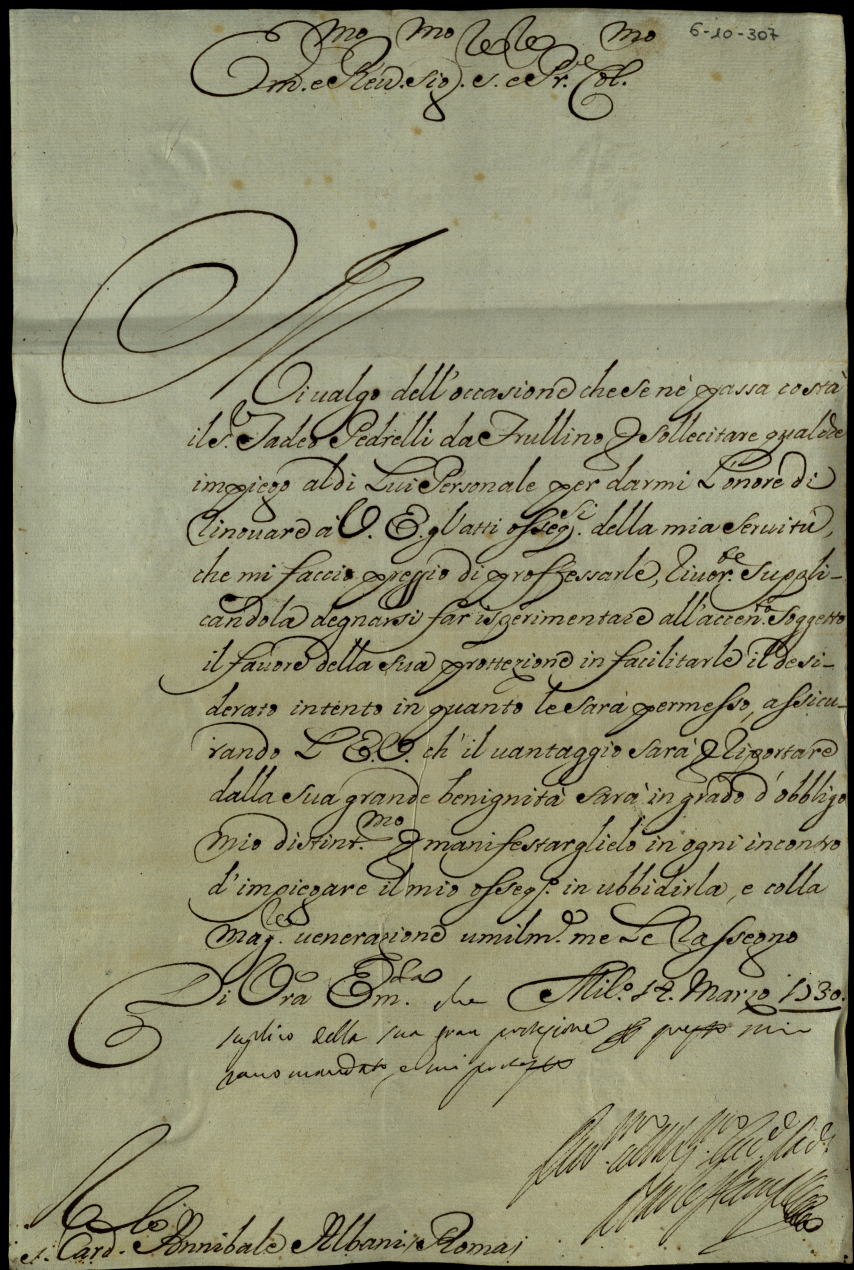 6-10-307
Em.mo e Reu.mo Sig.re S.e e Pr.e Col.mo
Mi ualgo dell'occasione che se nè passa costà
il S.r Tadeo Pedrelli da Frullino p sollecitare qualche
impiego al di Lui Personale per darmi L'onore di
rinouare à V. E. gl'atti osseq.si della mia Seruitù,
che mi faccio preggio di proffessarle, riuer.te Suppli-
candola degnarsi far isperimentare all'accen.to Soggetto
il fauore della Sua prottezione in facilitarle il desi-
derato intento in quanto le Sarà permesso, assicu-
rando L'E.V. ch'il uantaggio Sarà p riportare
dalla Sua grande benignità Sarà in grado d'obbligo
mio distint.mo p manifestarglielo in ogni incontro
d'impiegare il mio osseq.o in ubbidirla, e colla
mag.re uenerazione umilm.te me Le rassegno
Di Vra Em.za che Mil.o 14. Marzo 1730.
suplico della sua gran protezione p questo mio
racomandato, e mi protesto
S. Card.le Annibale Albani / Roma /